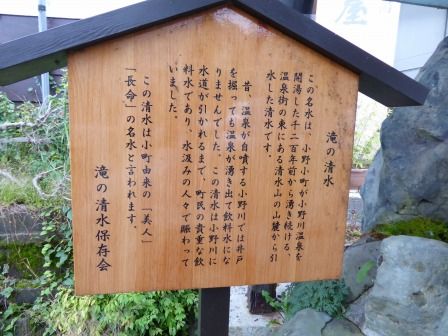 滝の清水
この名水は、小野小町が小野川温泉を
開湯した千二百年前から湧き続ける、
温泉街の東にある清水山の山麓から引
水した清水です。
昔、温泉が自噴する小野川では井戸
を掘っても温泉が湧き出て飲料水にな
りませんでした。この清水は小野川に
水道が引かれるまで、町民の貴重な飲
料水であり、水汲みの人々で賑わって
いました。
この清水は小町由来の「美人」
「長命」の名水と言われます。
滝の清水保存会
屋